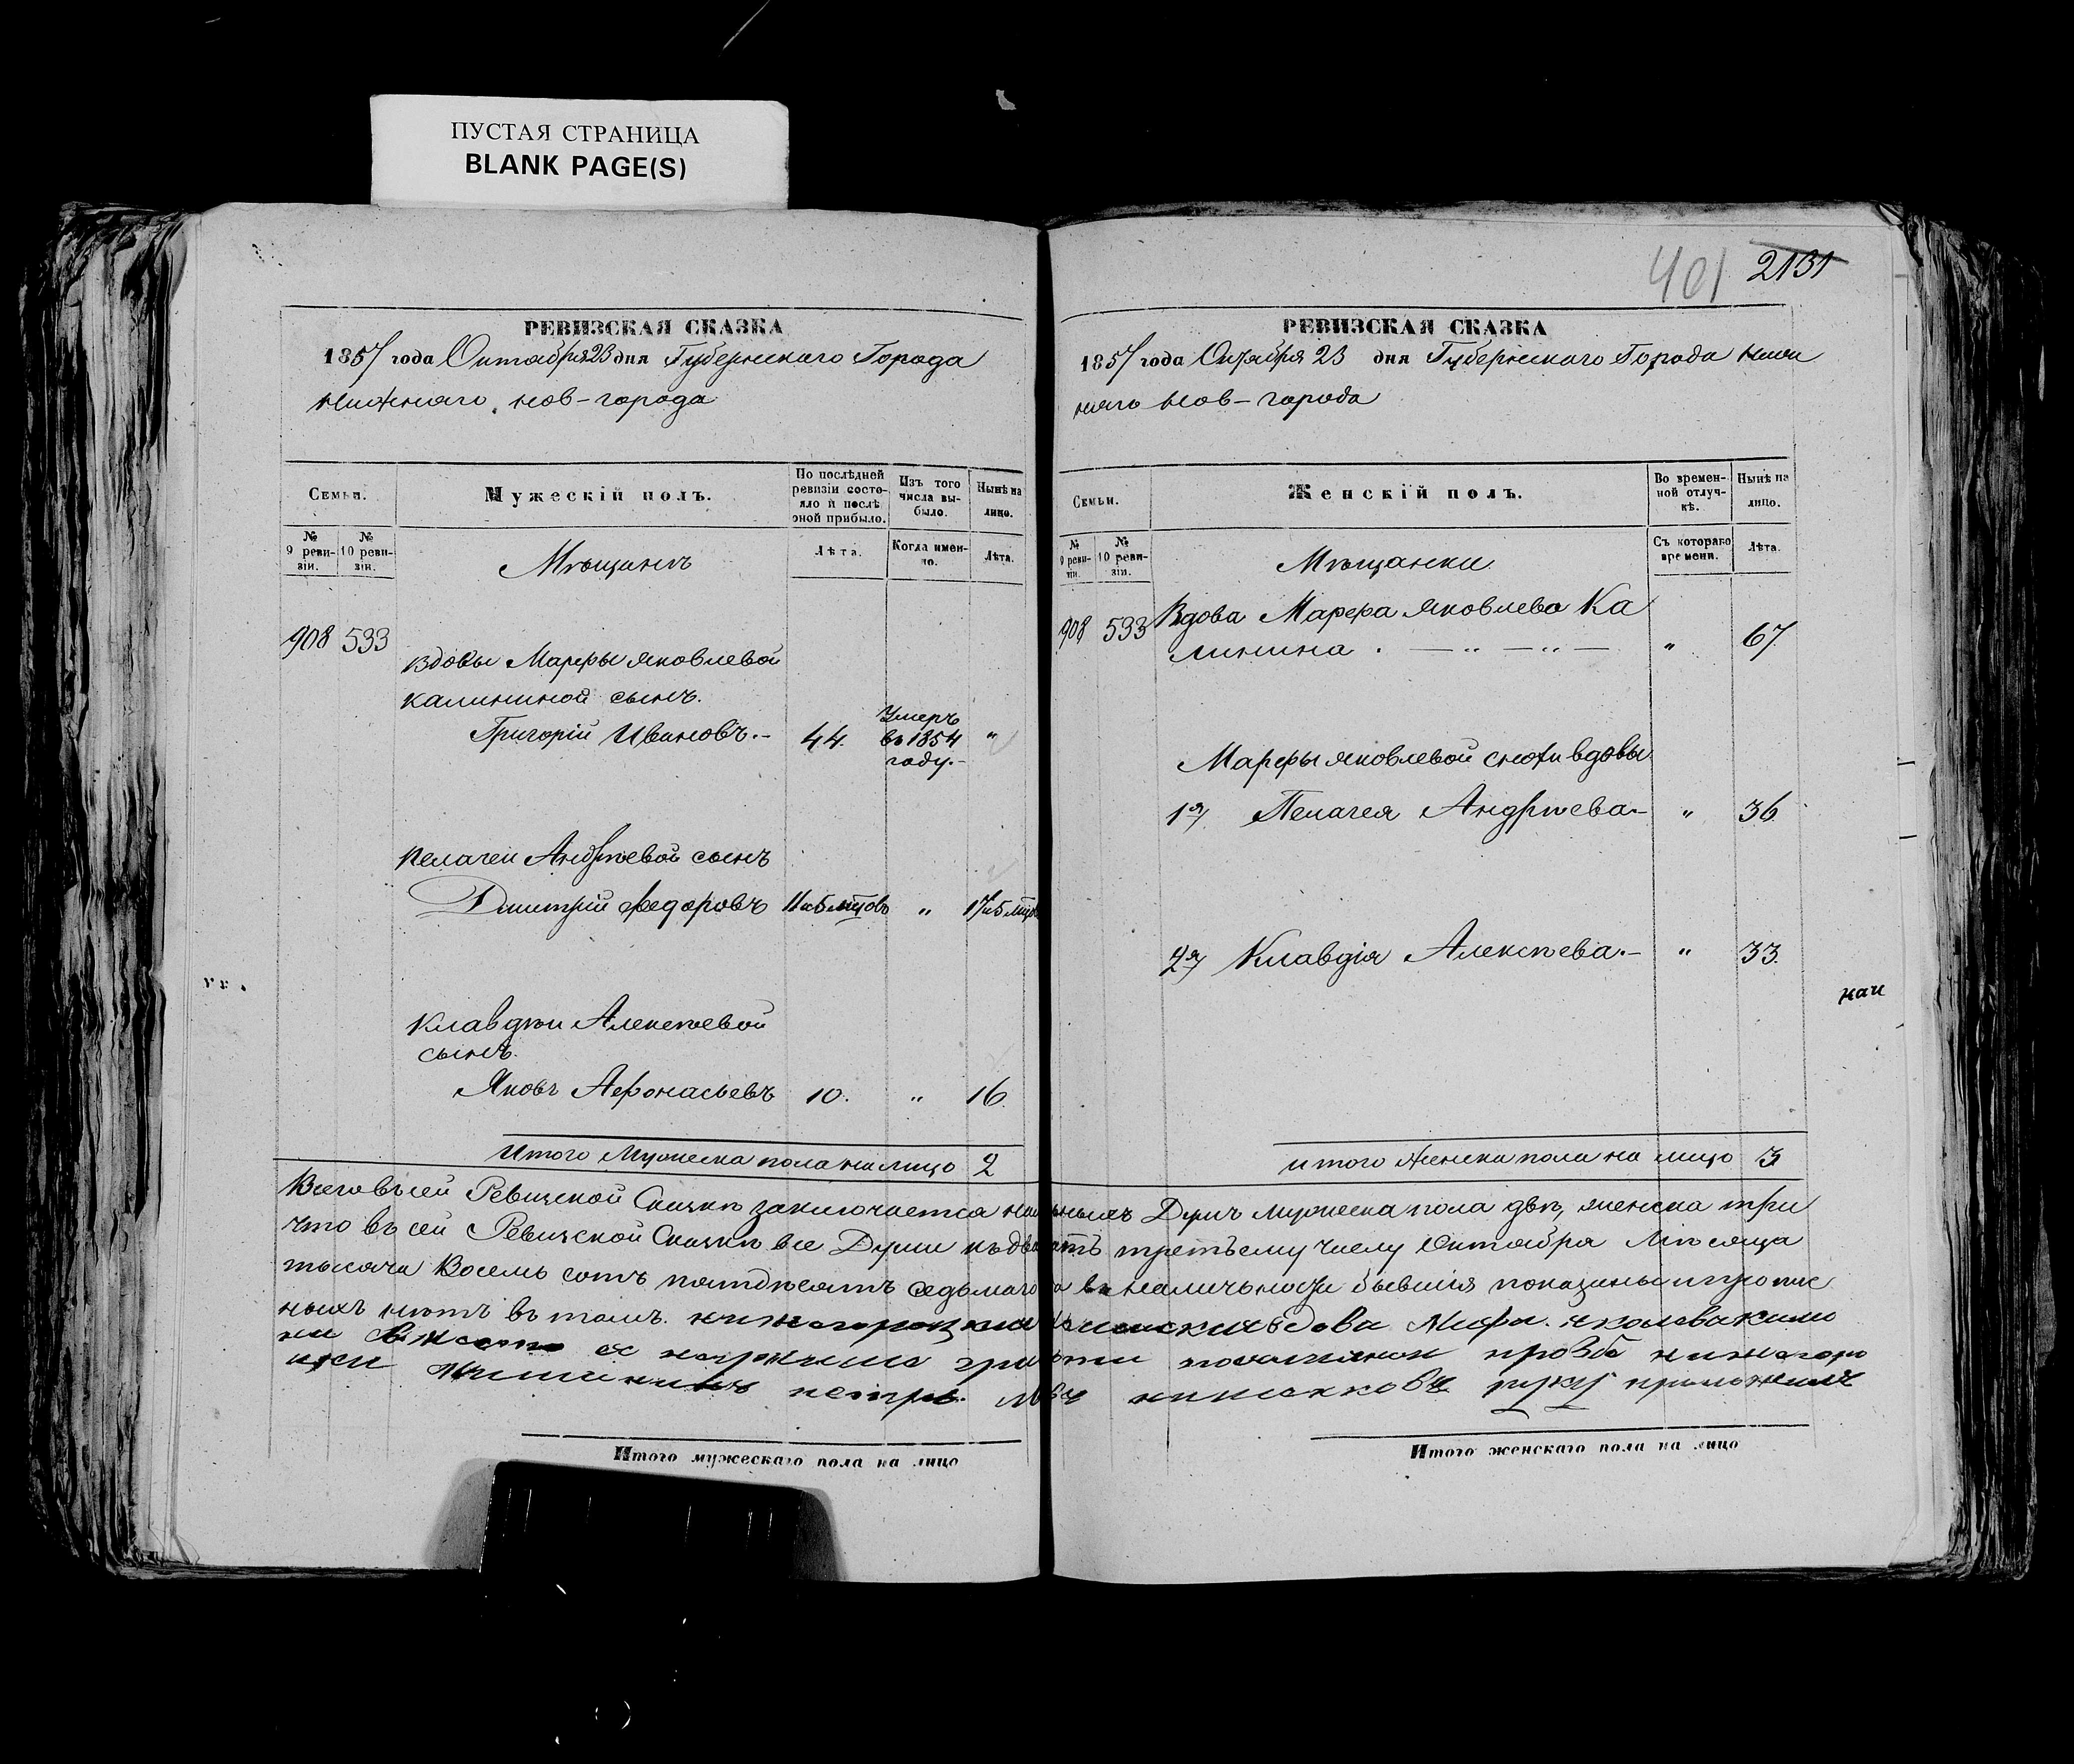 ПУСТАЯ СТРАНИЦА
BLANK PAGE(S)
РЕВИЗСКАЯ СКАЗКА
1857 года Октября 23 дня Губернскаго Города
Нижняго нов-города
Семьи.
Мужескій полъ.
По послѣдней ревизіи состо-
яло и послѣ
оной прибыло.
Изъ того
числа вы-
было.
Нынѣ на
лицо.
№
9 реви-
зіи.
№
10 реви-
зіи.
Мѣщанъ
Лѣта.
Когда имен-
но.
Лѣта.
908 533
Вдовы Марѳы Яковлевой
Калининой сынъ.
Григорій Ивановъ.- 44. Умеръ
въ 1854
году.- "
Пелагеи Андрѣевой сынъ
Дмитрій Федоровъ 11 и 5 мцовъ " 17 и 5 мцов
Клавдѣи Алексѣевой
сынъ.
Яковъ Афонасьевъ 10. " 16.
Итого Мужеска пола на лицо 2
401 2131
РЕВИЗСКАЯ СКАЗКА
1857 года Октября 23 дня Губернскаго Города Ниж
няго Нов-города
Семьи.
Женскій полъ.
Во времен-
ной отлуч-
кѣ.
Нынѣ на
лицо.
№
9 реви-
зіи.
№
10 реви-
зіи.
Мѣщанки
Съ котораго
времени.
Лѣта.
908 533 Вдова Марфа Яковлева Ка
линина . — " — " — " 67.
Марфы Яковлевой снохи вдовы
1я Пелагея Андрѣева.- " 36.
2я Клавдія Алексѣева.- " 33.
нач
итого Женска пола на лицо 3
Всего въ сей Ревизской Сказкѣ заключается наличныхъ Душъ мужеска пола двѣ, женска три
что въ сей Ревизской Сказкѣ все Души къ двадцать третьему числу Октября Мѣсяца
тысяча Восемь сотъ пятдесятъ седьмаго года въ наличьности бывшія показаны и пропис
ныхъ нѣтъ въ томъ. вдова
руку приложилъ
Итого мужескаго пола на лицо
Итого женскаго пола на лицо